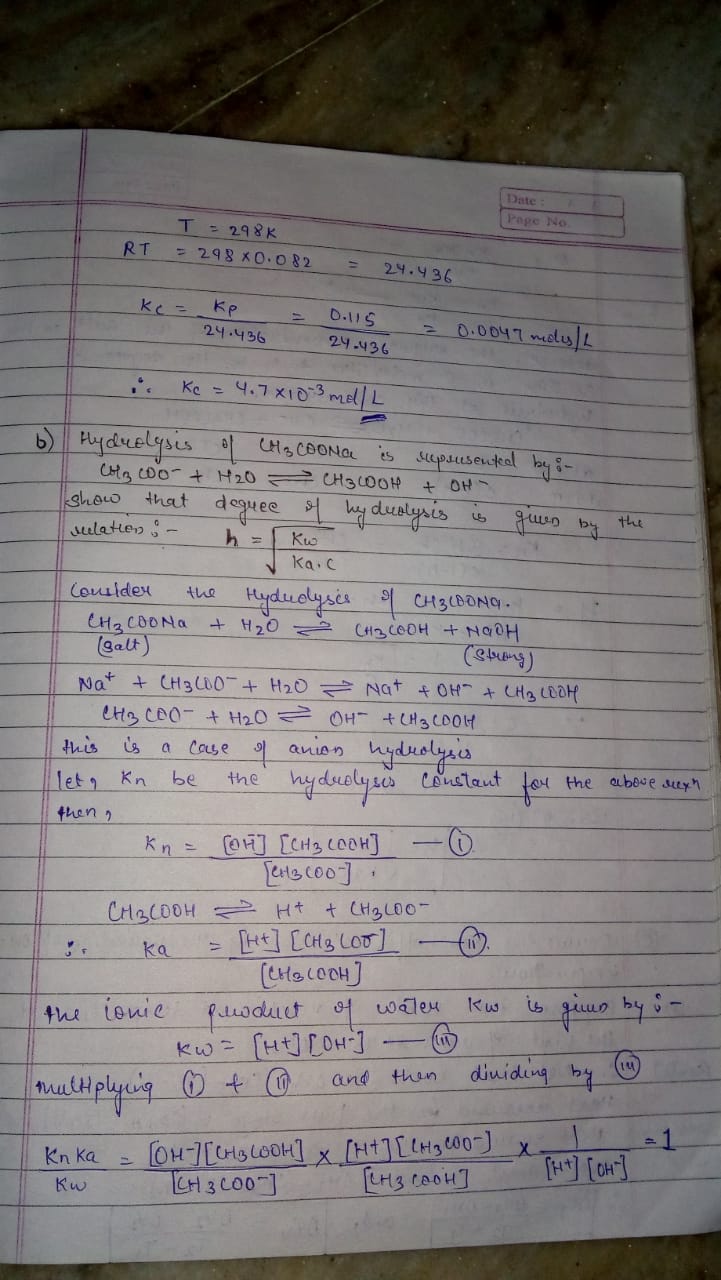 Date :
Page No.
T = 298K
RT = 298 x 0.082 = 24.436
Kc = Kp / 24.436 = 0.115 / 24.436 = 0.0047 moles/L
∴ Kc = 4.7 x 10^-3 mol/L
b) Hydrolysis of CH3COONa is represented by :-
CH3COO- + H2O ⇌ CH3COOH + OH-
show that degree of hydrolysis is given by the
relation :- h = √(Kw / Ka.C)
Consider the Hydrolysis of CH3COONa.
CH3COONa + H2O ⇌ CH3COOH + NaOH
(Salt) (Strong)
Na+ + CH3COO- + H2O ⇌ Na+ + OH- + CH3COOH
CH3COO- + H2O ⇌ OH- + CH3COOH
this is a case of anion hydrolysis
let, Kn be the hydrolysis constant for the above rexn
then,
Kn = [OH-] [CH3COOH] / [CH3COO-] — (i)
CH3COOH ⇌ H+ + CH3COO-
∴ Ka = [H+] [CH3COO-] / [CH3COOH] — (ii).
the ionic product of water Kw is given by :-
Kw = [H+] [OH-] — (iii)
multiplying (i) & (ii) and then dividing by (iii)
Kn Ka / Kw = [OH-][CH3COOH] / [CH3COO-] x [H+][CH3COO-] / [CH3COOH] x 1 / [H+][OH-] = 1